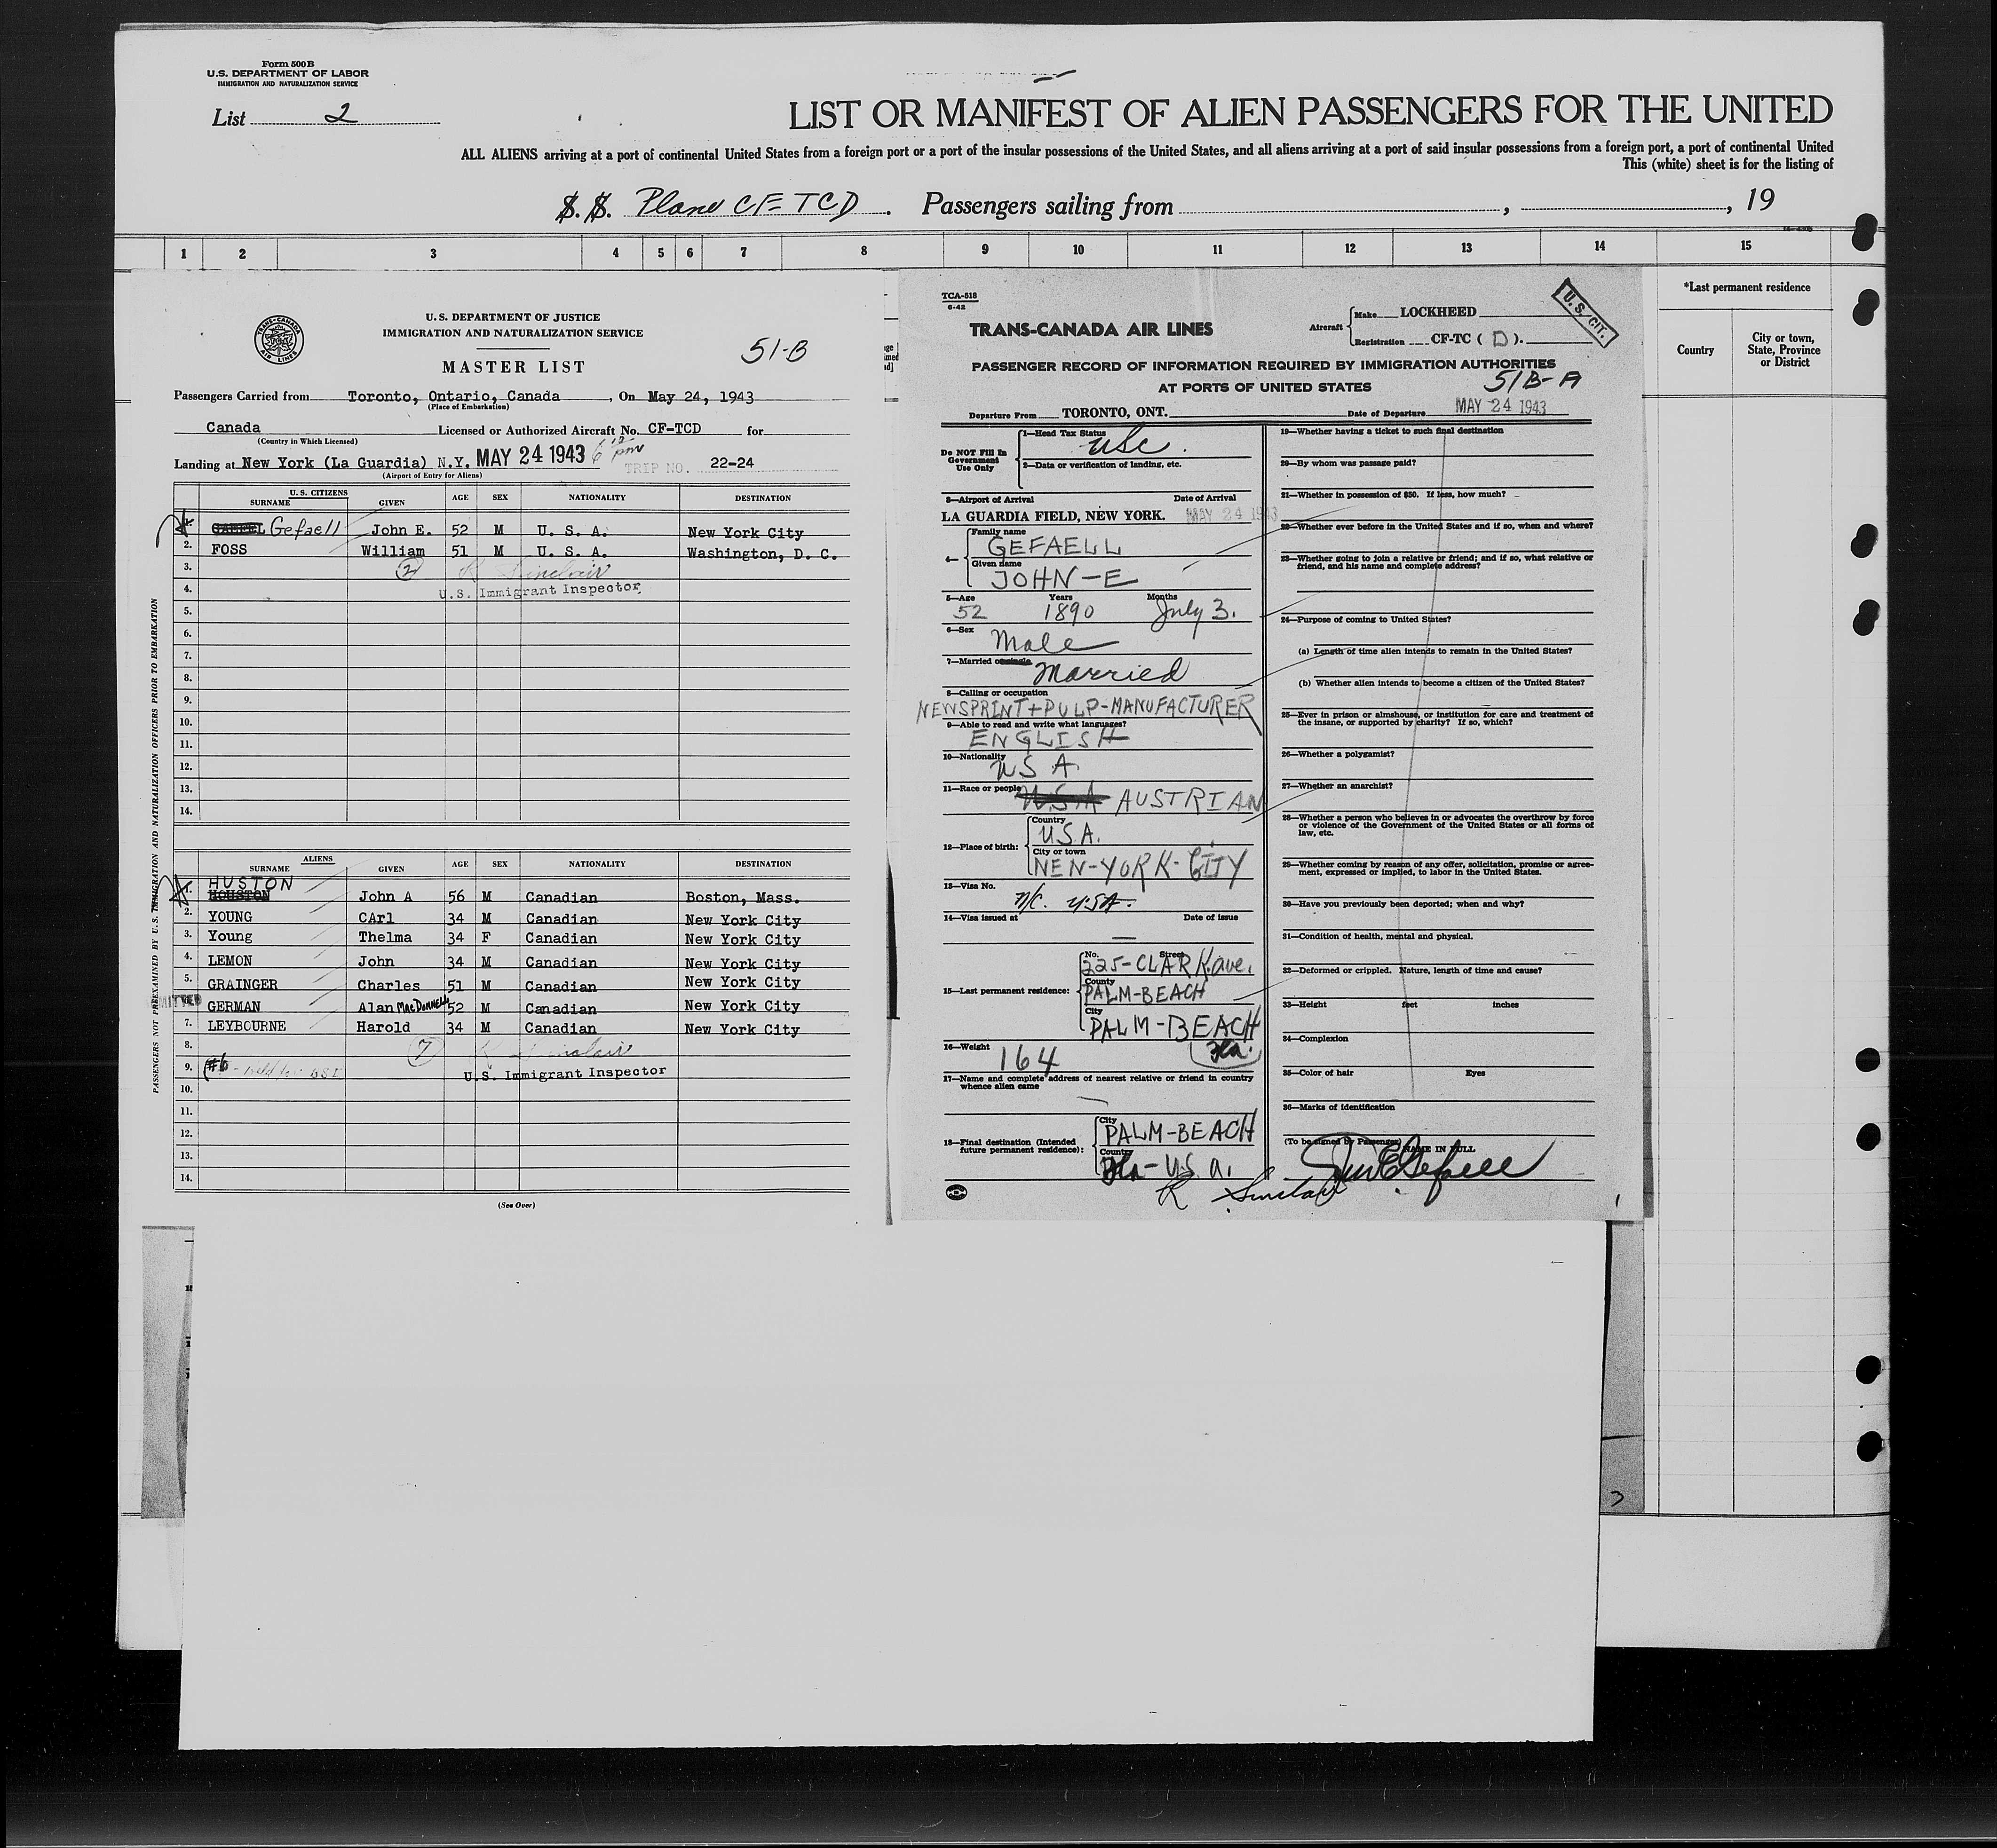 Form 500 B
U.S. DEPARTMENT OF LABOR
IMMIGRATION AND NATURALIZATION SERVICE
List 2
LIST OR MANIFEST OF ALIEN PASSENGERS FOR THE UNITED
ALL ALIENS arriving at a port of continental United States from a foreign port or a port of the insular possessions of the United States, and all aliens arriving at a port of said insular possessions from a foreign port, a port of continental United
This (white) sheet is for the listing of
S. S. Plane CF-TCD . Passengers sailing from , , 19
1 2 3 4 5 6 7 8 9 10 11 12 13 14 15
*Last permanent residence
Country
City or town, State, Province or District
TRANS-CANADA AIR LINES
U. S. DEPARTMENT OF JUSTICE
IMMIGRATION AND NATURALIZATION SERVICE
MASTER LIST
51-B
Passengers Carried from Toronto, Ontario, Canada , On May 24, 1943
(Place of Embarkation)
Canada Licensed or Authorized Aircraft No. CF-TCD for
(Country in Which Licensed)
Landing at New York (La Guardia) N.Y. MAY 24 1943 6 12 pm TRIP NO. 22-24
(Airport of Entry for Aliens)
U. S. CITIZENS
SURNAME GIVEN AGE SEX NATIONALITY DESTINATION
1. Gefaell John E. 52 M U. S. A. New York City
2. FOSS William 51 M U. S. A. Washington, D. C.
3. (2) R Sinclair
4. U.S. Immigrant Inspector
5.
6.
7.
8.
9.
10.
11.
12.
13.
14.
ALIENS
SURNAME GIVEN AGE SEX NATIONALITY DESTINATION
HUSTON
1. HOUSTON John A 56 M Canadian Boston, Mass.
2. YOUNG CArl 34 M Canadian New York City
3. Young Thelma 34 F Canadian New York City
4. LEMON John 34 M Canadian New York City
5. GRAINGER Charles 51 M Canadian New York City
GERMAN Alan MacDonnell 52 M Canadian New York City
7. LEYBOURNE Harold 34 M Canadian New York City
8. (7) R Sinclair
9. (#6 - Held for BSI U.S. Immigrant Inspector
10.
11.
12.
13.
14.
(See Over)
PASSENGERS NOT PREEXAMINED BY U.S. IMMIGRATION AND NATURALIZATION OFFICERS PRIOR TO EMBARKATION
TCA-518
6-42
TRANS-CANADA AIR LINES
Aircraft
Make LOCKHEED
Registration CF-TC ( D ).
U.S. CIT.
PASSENGER RECORD OF INFORMATION REQUIRED BY IMMIGRATION AUTHORITIES
AT PORTS OF UNITED STATES
51B-A
Departure From TORONTO, ONT. Date of Departure MAY 24 1943
Do NOT Fill In Government Use Only
1—Head Tax Status
USC.
2—Data or verification of landing, etc.
3—Airport of Arrival Date of Arrival
LA GUARDIA FIELD, NEW YORK. MAY 24 1943
4— Family name
GEFAELL
Given name
JOHN-E
5—Age Years Months
52 1890 July 3.
6—Sex
Male
7—Married or single
Married
8—Calling or occupation
NEWSPRINT+PULP-MANUFACTURER
9—Able to read and write what languages?
ENGLISH
10—Nationality
USA.
11—Race or people U.S.A AUSTRIAN
12—Place of birth:
Country
U.S.A.
City or town
NEW-YORK-CITY
13—Visa No.
N/C. USA.
14—Visa issued at Date of issue
—
15—Last permanent residence:
No. Street
225-CLARK ave.
County
PALM-BEACH
City
PALM-BEACH
Fla.
16—Weight 164
17—Name and complete address of nearest relative or friend in country whence alien came
18—Final destination (Intended future permanent residence):
City
PALM-BEACH
Country
Fla-U.S.A.
R Sinclair
19—Whether having a ticket to such final destination
20—By whom was passage paid?
21—Whether in possession of $50. If less, how much?
22—Whether ever before in the United States and if so, when and where?
23—Whether going to join a relative or friend; and if so, what relative or friend, and his name and complete address?
24—Purpose of coming to United States?
(a) Length of time alien intends to remain in the United States?
(b) Whether alien intends to become a citizen of the United States?
25—Ever in prison or almshouse, or institution for care and treatment of the insane, or supported by charity? If so, which?
26—Whether a polygamist?
27—Whether an anarchist?
28—Whether a person who believes in or advocates the overthrow by force or violence of the Government of the United States or all forms of law, etc.
29—Whether coming by reason of any offer, solicitation, promise or agreement, expressed or implied, to labor in the United States.
30—Have you previously been deported; when and why?
31—Condition of health, mental and physical.
32—Deformed or crippled. Nature, length of time and cause?
33—Height feet inches
34—Complexion
35—Color of hair Eyes
36—Marks of identification
(To be signed by Passenger) NAME IN FULL
John E Gefaell